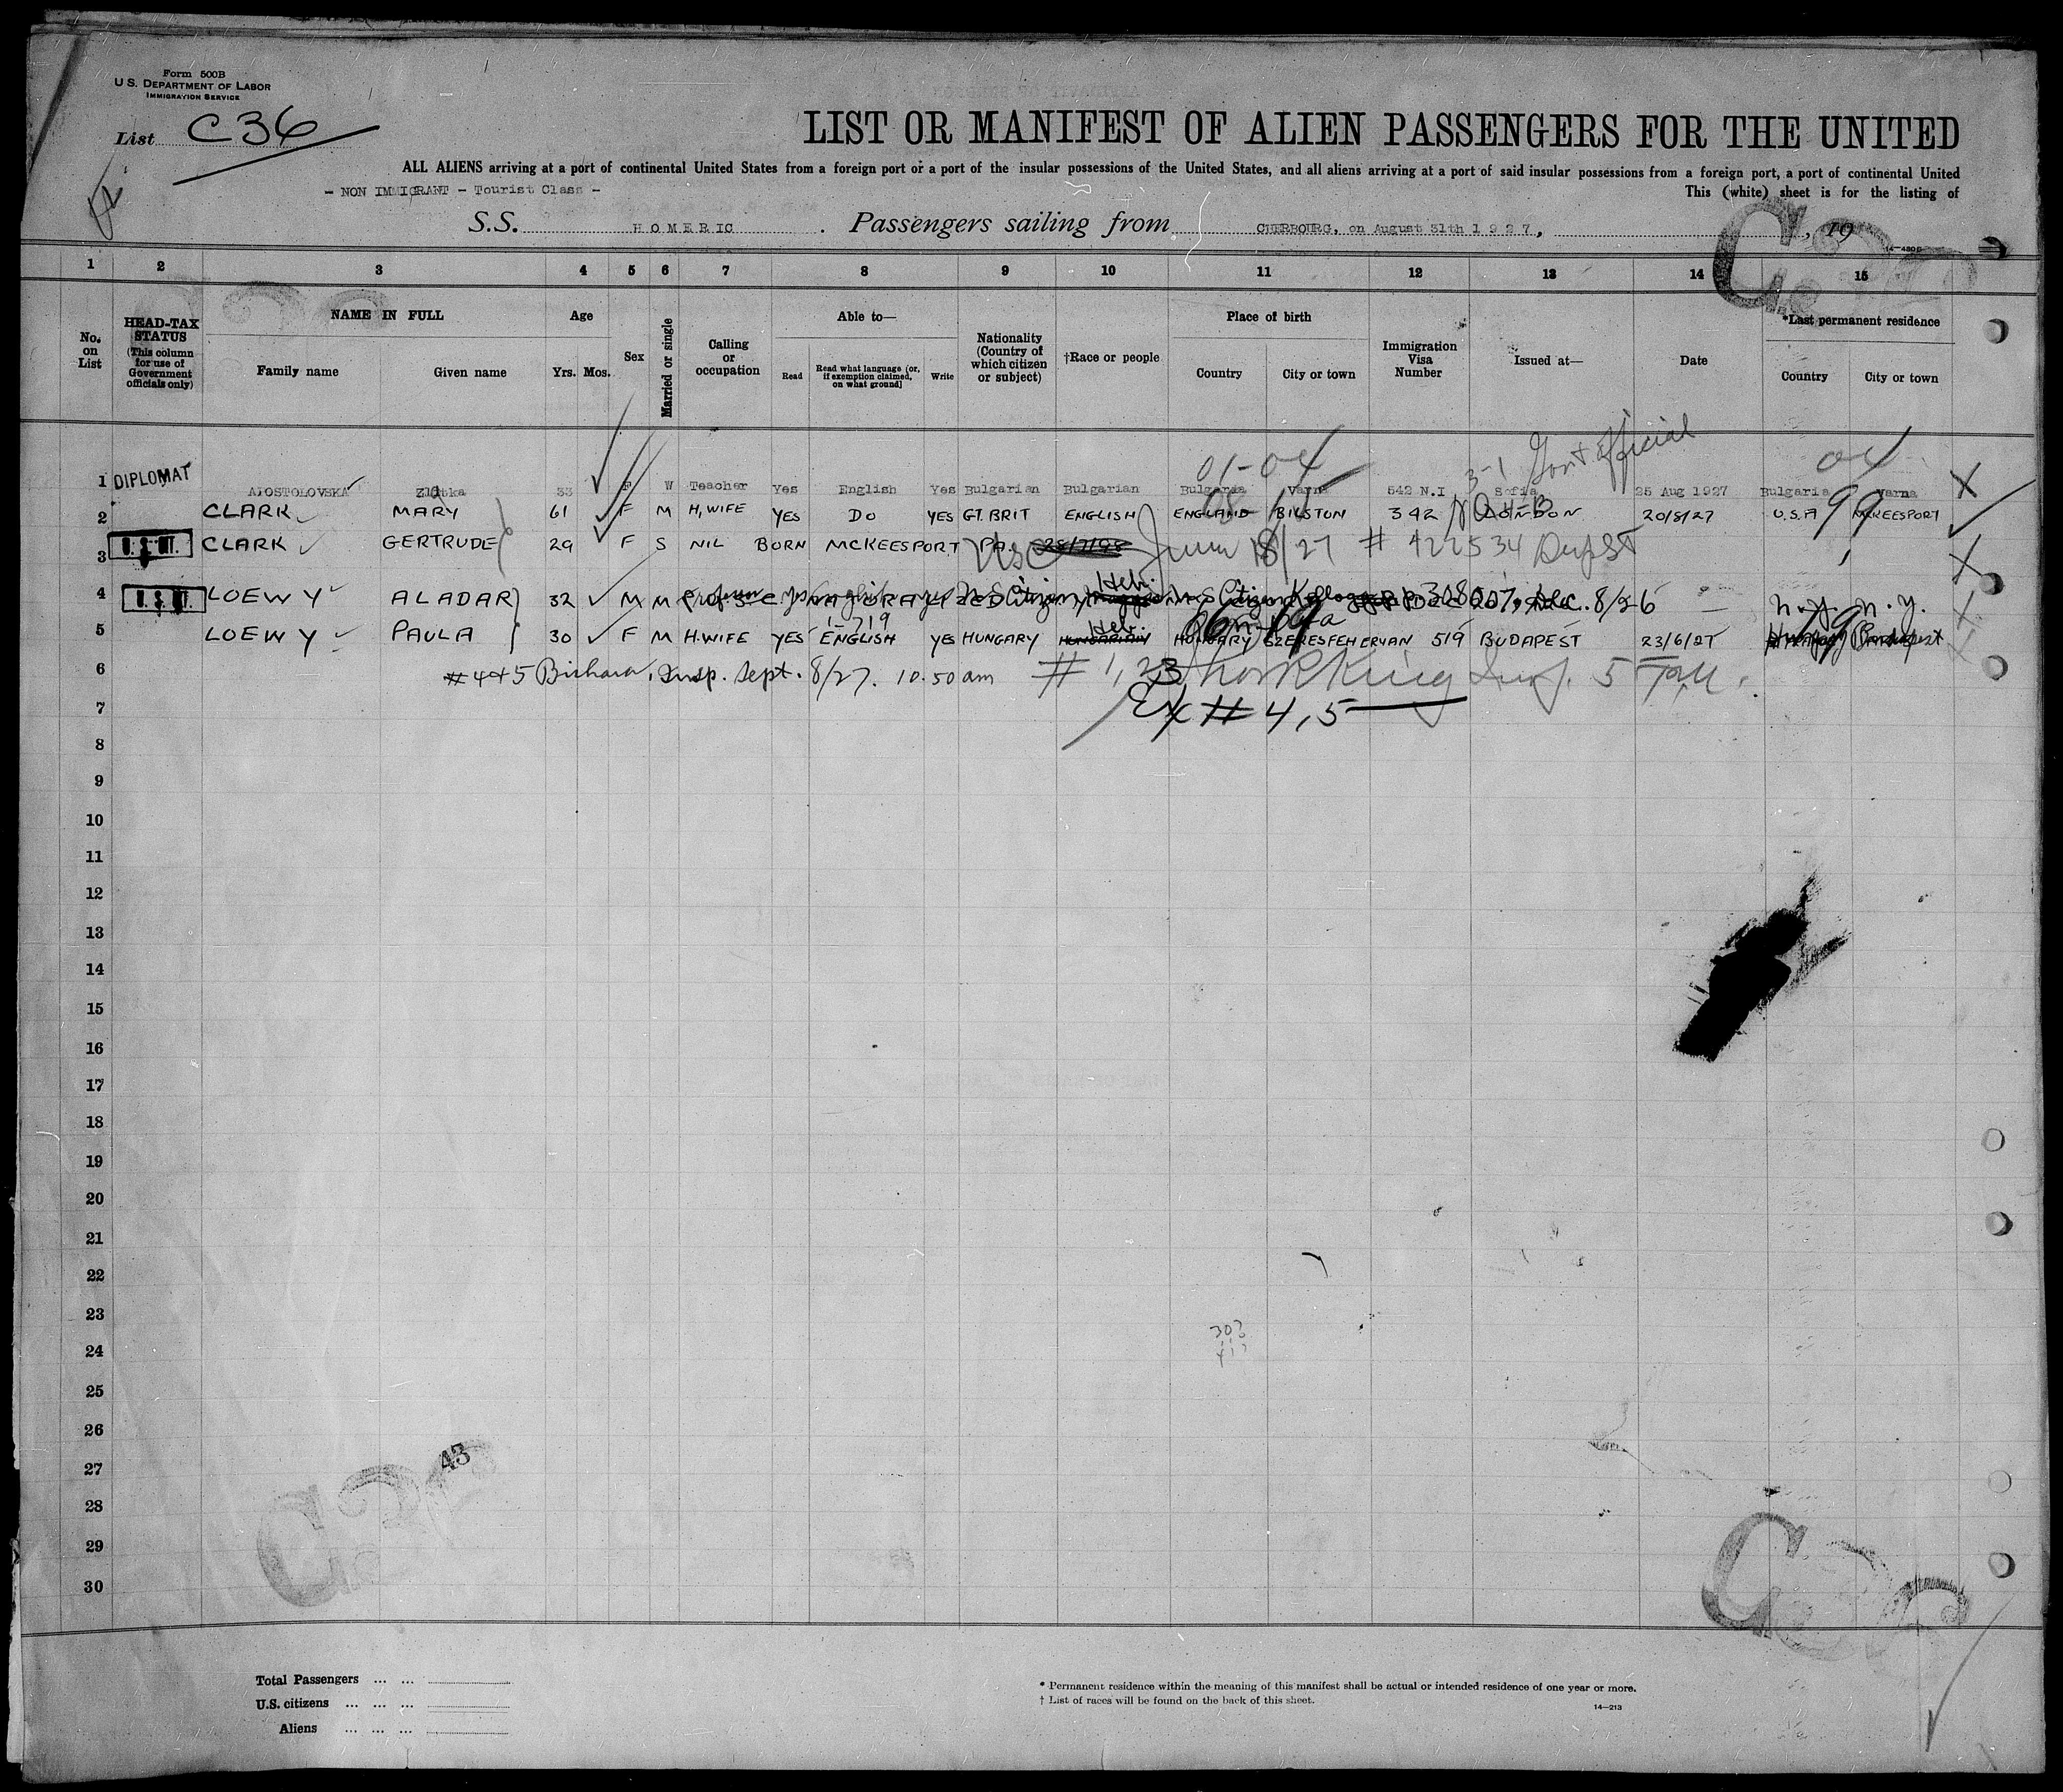 Form 500B
U. S. DEPARTMENT OF LABOR
IMMIGRATION SERVICE
List C36
LIST OR MANIFEST OF ALIEN PASSENGERS FOR THE UNITED
ALL ALIENS arriving at a port of continental United States from a foreign port or a port of the insular possessions of the United States, and all aliens arriving at a port of said insular possessions from a foreign port, a port of continental United
- NON IMMIGRANT - Tourist Class -
This (white) sheet is for the listing of
S.S. HOMERIC. Passengers sailing from CHERBOURG, on August 31th 1927, , 19
1 2 3 4 5 6 7 8 9 10 11 12 13 14 15
No. on List
HEAD-TAX STATUS (This column for use of Government officials only)
NAME IN FULL Family name Given name
Age Yrs. Mos.
Sex
Married or single
Calling or occupation
Able to— Read Read what language [or, if exemption claimed, on what ground] Write
Nationality (Country of which citizen or subject)
†Race or people
Place of birth Country City or town
Immigration Visa Number
Issued at—
Date
*Last permanent residence Country City or town
01-04 3-1 Gov't Official 04
1 DIPLOMAT APOSTOLOVSKA Zlatka 53 F W Teacher Yes English Yes Bulgarian Bulgarian Bulgaria Varna 542 N.I Sofia 25 Aug 1927 Bulgaria Varna X
2 CLARK MARY 61 F M H,WIFE YES DO YES GT. BRIT ENGLISH ENGLAND BILSTON 392 LONDON 20/8/27 U.S.A 99 MCKEESPORT
3 CLARK GERTRUDE 29 F S NIL BORN MCKEESPORT PA. USC 18/27 # 422534 X
4 LOEWY ALADAR 32 M M Professor yes English yes U.S. Citizen Heb. 308007, Dec. 8/26 — N.Y. N.Y. X
5 LOEWY PAULA 30 F M H.WIFE YES ENGLISH YES HUNGARY Heb. HUNGARY SZEKESFEHERVAN 519 BUDAPEST 23/6/27
6 #4+5 Bishara, Insp. Sept. 8/27. 10.50 am # 1, 23 King Insp. 5
7 Ex # 4, 5
8
9
10
11
12
13
14
15
16
17
18
19
20
21
22
23
24
25
26
27
28
29
30
43
Total Passengers ... ...
U.S. citizens ... ... ...
Aliens ... ... ...
* Permanent residence within the meaning of this manifest shall be actual or intended residence of one year or more.
† List of races will be found on the back of this sheet.
14—213